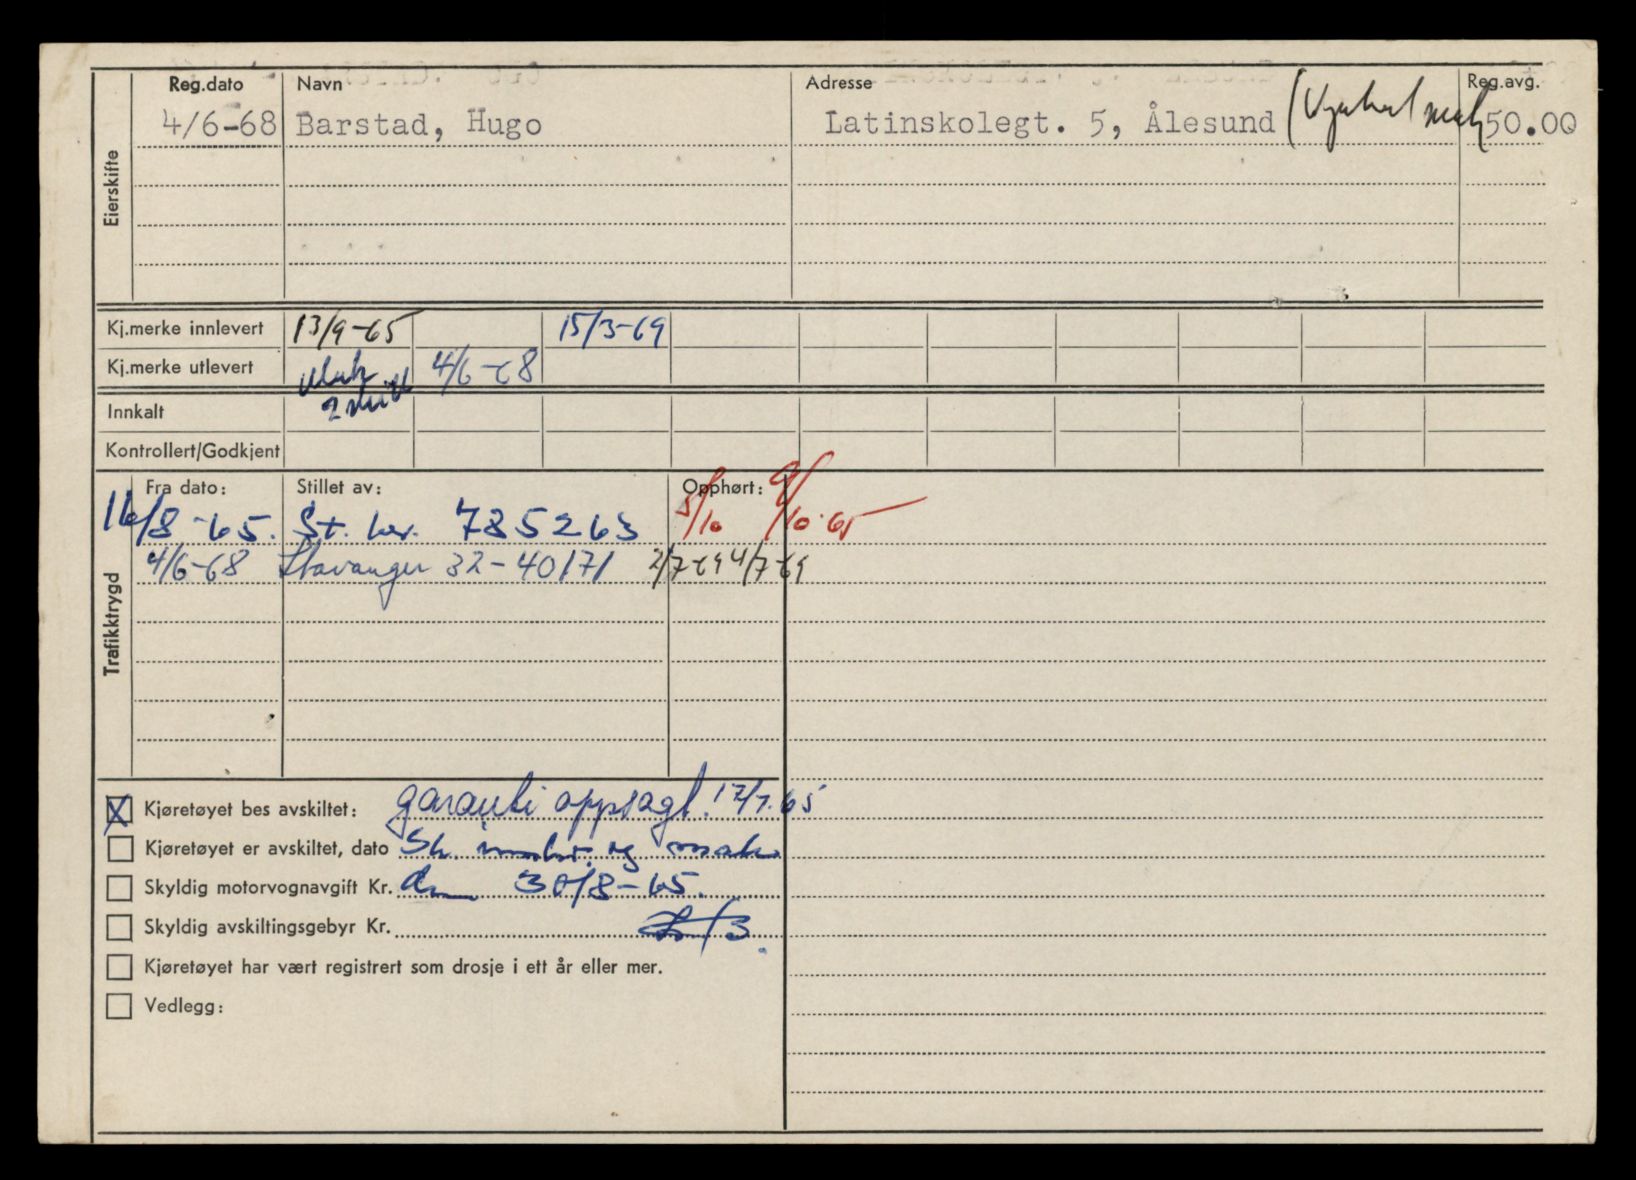 Reg.dato Navn Adresse Reg.avg.
4/6-68 Barstad, Hugo Latinskolegt. 5, Ålesund 50.00
Eierskifte
Kj.merke innlevert 13/9-65 15/3-69
Kj.merke utlevert 4/6-68
Innkalt
Kontrollert/Godkjent
Trafikktrygd
Fra dato: Stillet av: Opphørt:
16/8-65. St. 785263 5/10 9/10-65
4/6-68 Stavanger 32-40171 2/7-69 4/7-69
X Kjøretøyet bes avskiltet: garanti oppsagt. 17/7.65
Kjøretøyet er avskiltet, dato og
Skyldig motorvognavgift Kr. 30/8-65.
Skyldig avskiltingsgebyr Kr.
Kjøretøyet har vært registrert som drosje i ett år eller mer.
Vedlegg: